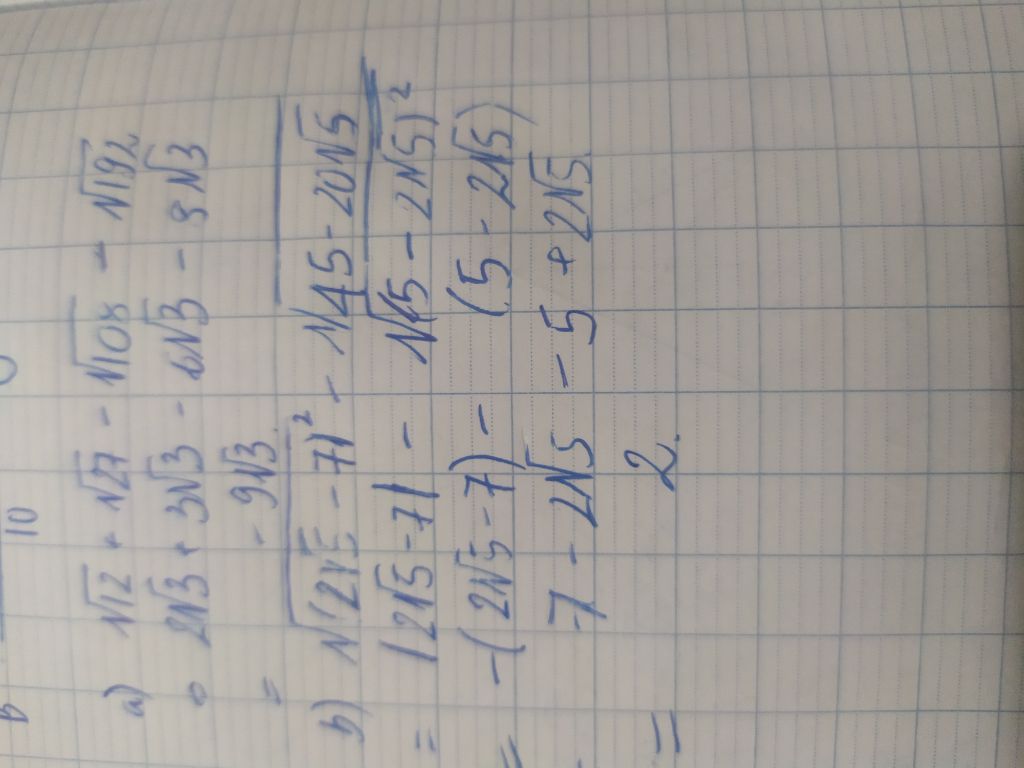 10
a) √12 + √27 - √108 - √192
= 2√3 + 3√3 - 6√3 - 8√3
= - 9√3
b) √(2√5 - 7)² - √45 - 20√5
= |2√5 - 7| - √(5 - 2√5)²
= -(2√5 - 7) - (5 - 2√5)
7 - 2√5 - 5 + 2√5
= 2.